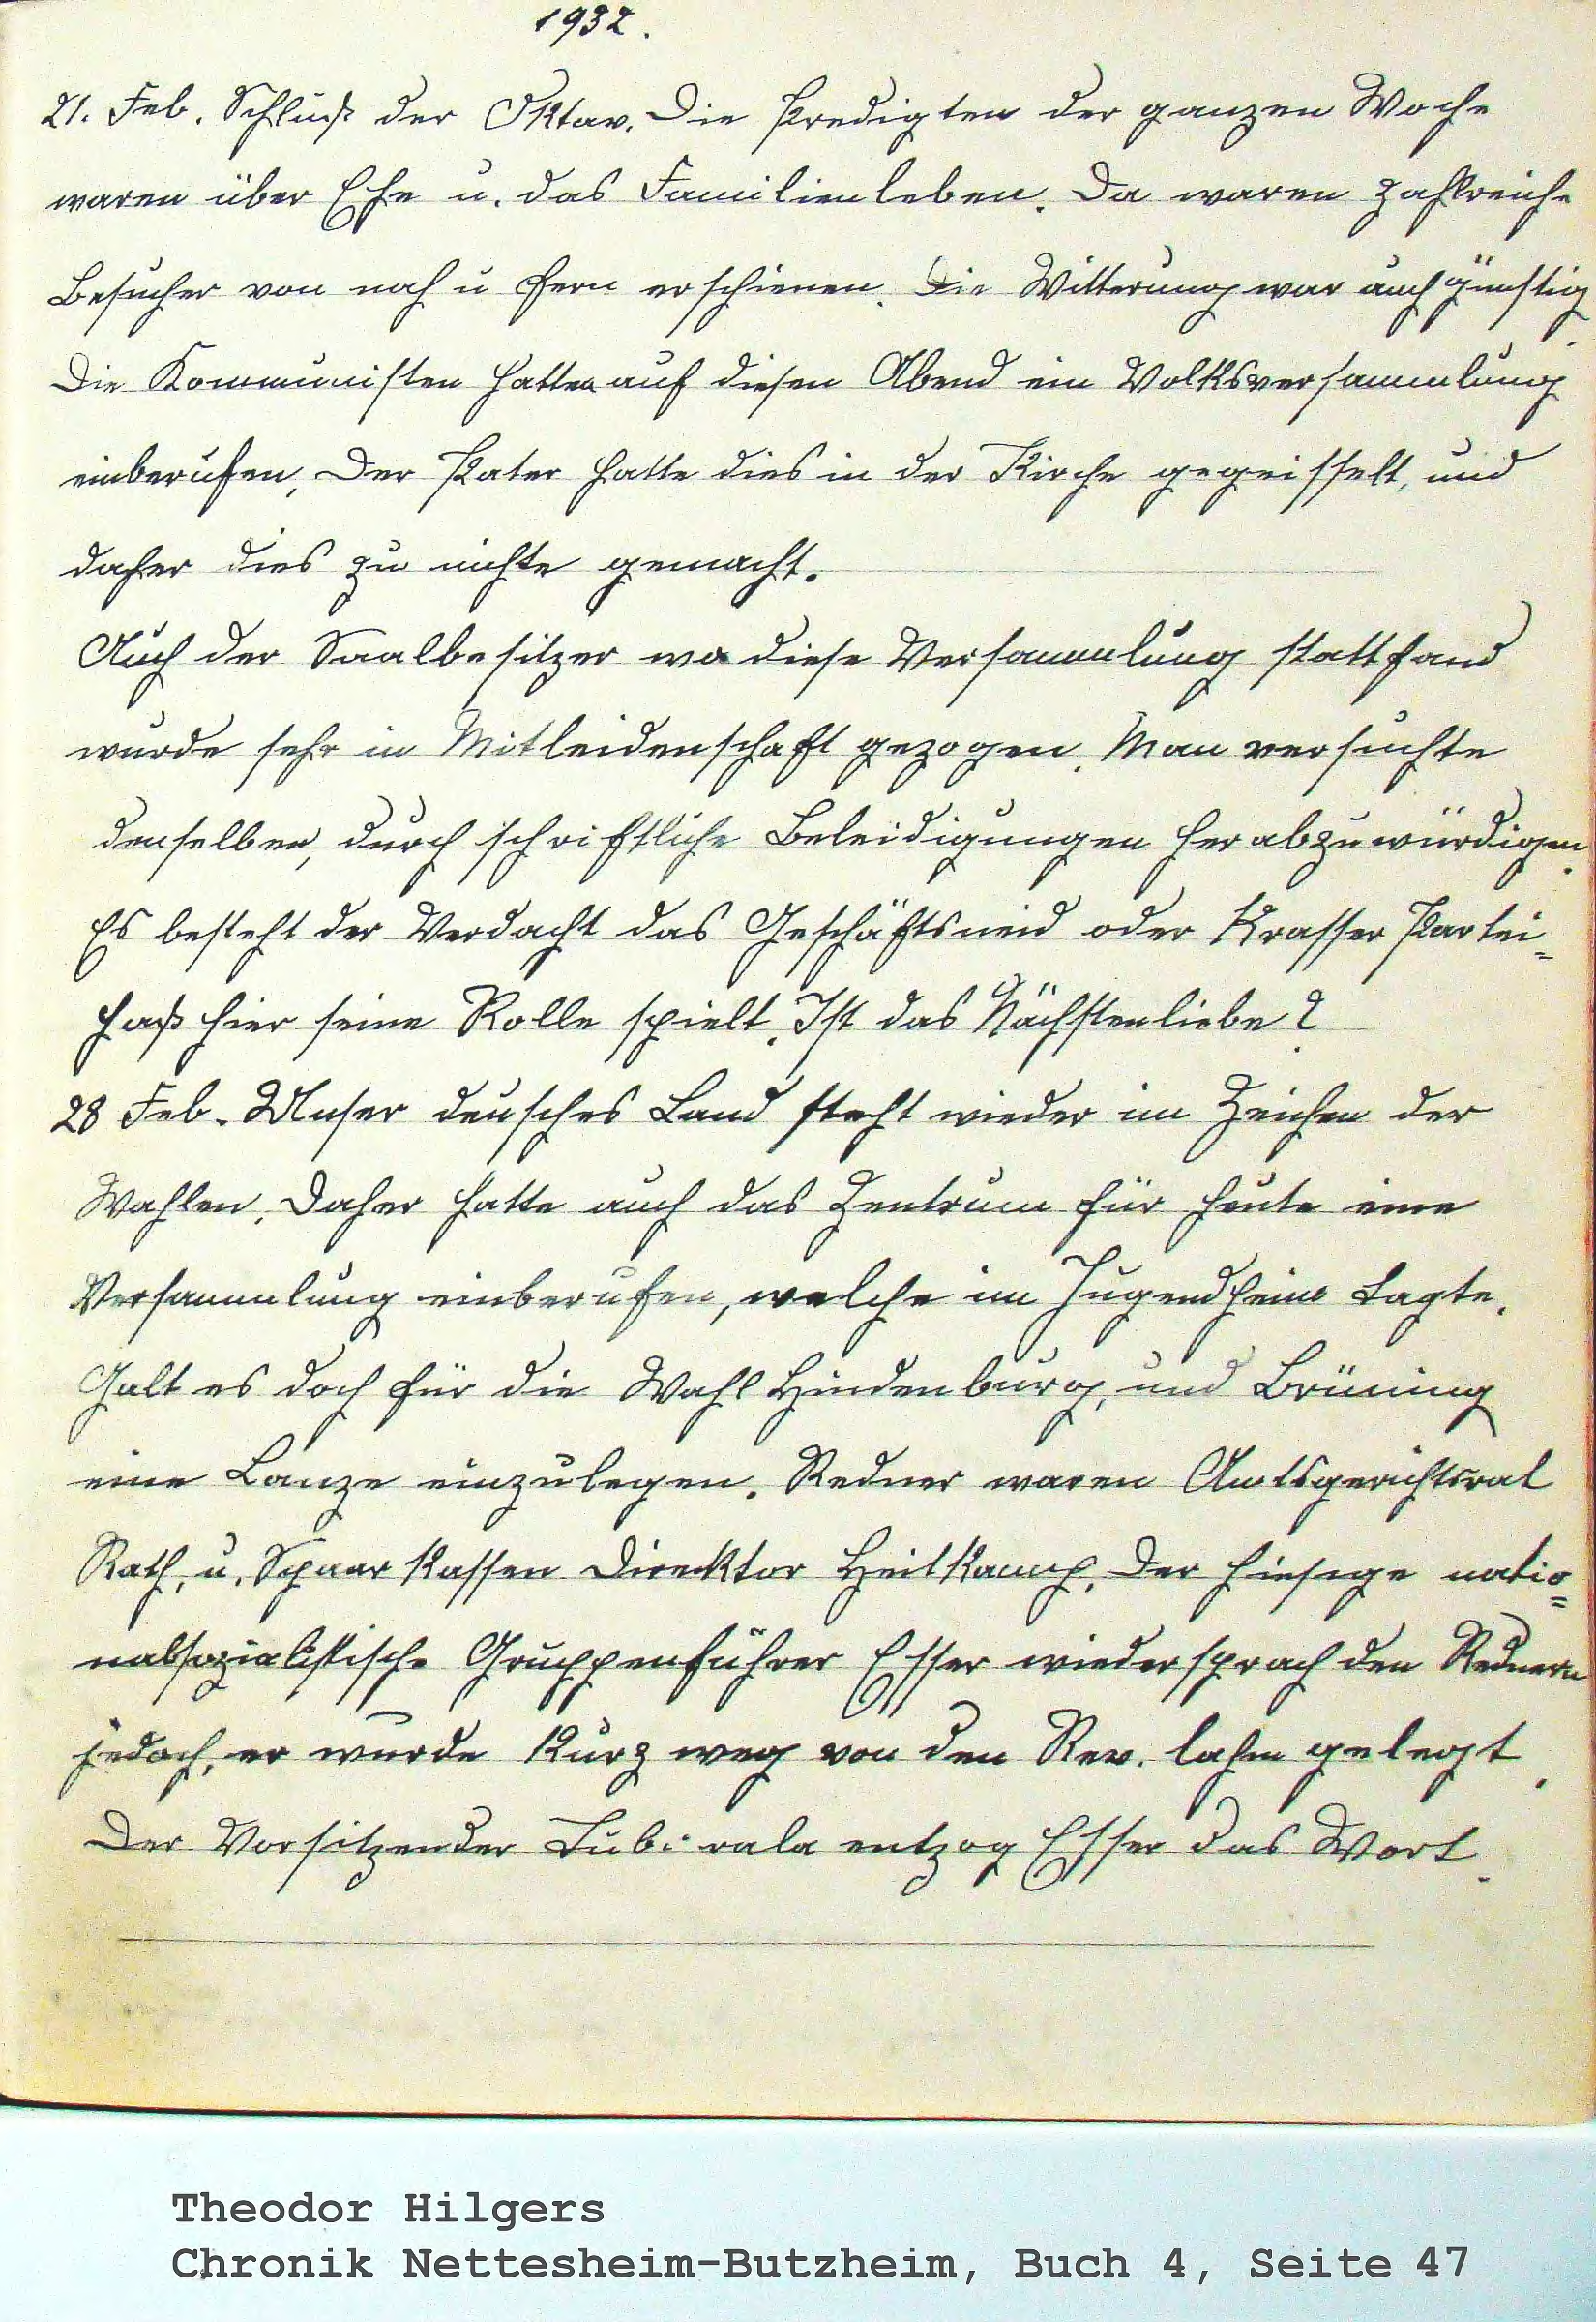 1932.
21. Feb. Schluß der Oktav. Die Predigten der ganzen Woche
waren über Ehe u. das Familienleben. Da waren zahlreiche
Besucher von nah u fern erschienen. Die Witterung war auch günstig.
Die Kommunisten hatten auf diesen Abend ein Volksversammlung
einberufen, Der Pater hatte dies in der Kirche gegeisselt, und
daher dies zu nichte gemacht.
Auch der Saalbesitzer wo diese Versammlung stattfand
wurde sehr in Mitleidenschaft gezogen. Man versuchte
denselben, durch schriftliche Beleidigungen herabzuwürdigen.
Es besteht der Verdacht das Geschäftsneid oder Krasser Partei=
haß hier seine Rolle spielt. Ist das Nächstenliebe?
28 Feb. Unser deusches Land steht wieder im Zeichen der
Wahlen. Daher hatte auch das Zentrum für heute eine
Versammlung einberufen, welche im Jugendheim tagte.
Galt es doch für die Wahl Hindenburg, und Brüning
eine Lanze einzulegen. Redner waren Amtsgerichtsrat
Rath, u. Spaar Kassen Direktor Heitkamp. Der hiesige natio=
nalsozialistische Gruppenführer Esser wiedersprach den Rednern
jedoch, er wurde Kurz weg von den Rev. lahm gelegt.
Der Vorsitzender entzog Esser das Wort.
Theodor Hilgers
Chronik Nettesheim-Butzheim, Buch 4, Seite 47